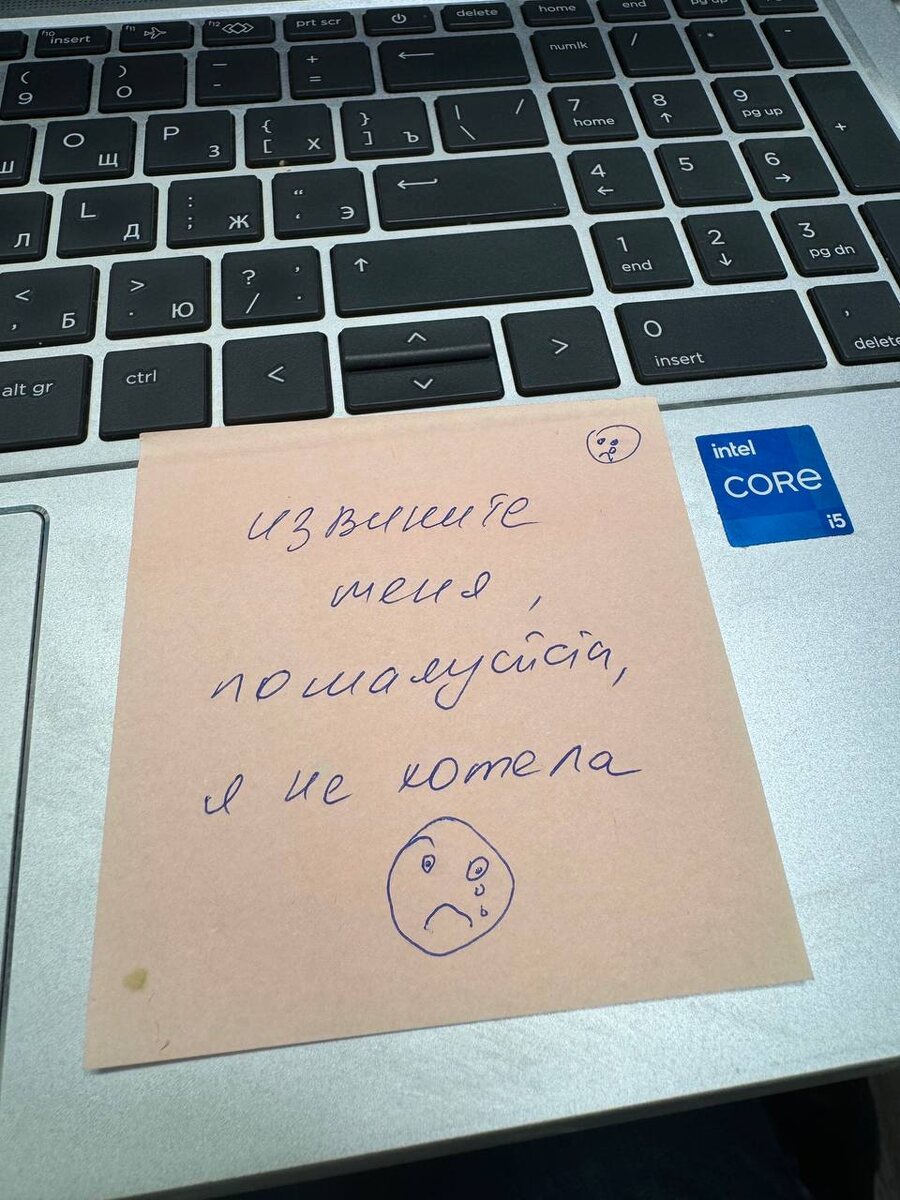 f10 insert f11 f12 prt scr delete home end pg up
( 9 ) 0 — - + = numlk / * -
ш O щ P з { [ х } ] ъ | \ / 7 home 8 ↑ 9 pg up +
л L д : ; ж “ ‘ э 4 ← 5 6 →
< , Б > . Ю ? / , . ↑ 1 end 2 ↓ 3 pg dn
alt gr ctrl < > 0 insert , delete
intel
CORE
i5
извините
меня,
пожалуйста,
я не хотела